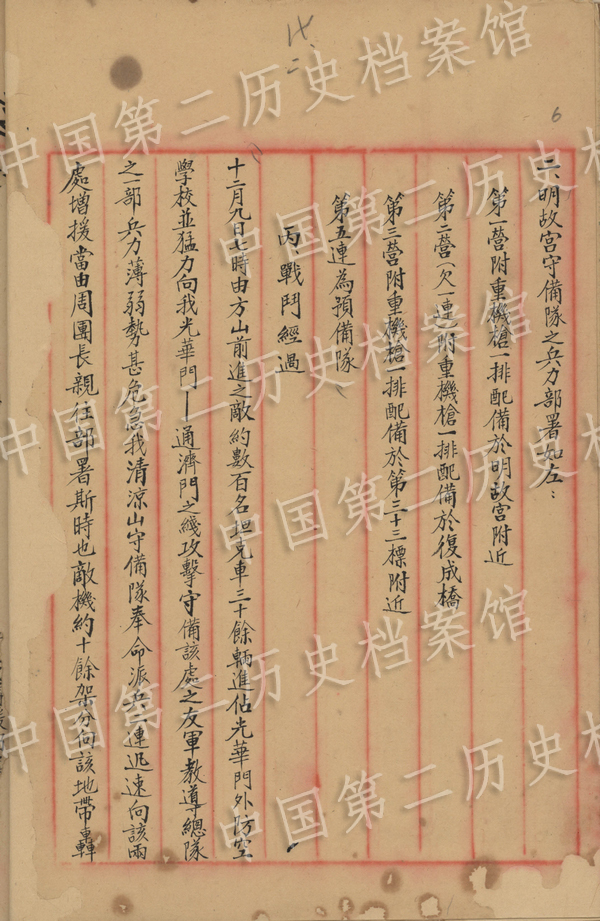 廿、二
6
二、明故宮守備隊之兵力部署如左：
第一營附重機槍一排配備於明故宮附近
第二營（欠一連）附重機槍一排配備於復成橋
第三營附重機槍一排配備於第三十三標附近
第五連為預備隊
丙、戰鬥經過
十二月九日七時由方山前進之敵約數百名坦克車三十餘輛進佔光華門外防空
學校並猛力向我光華門—通濟門之綫攻擊守備該處之友軍教導總隊
之一部兵力薄弱勢甚危急我清涼山守備隊奉命派兵一連迅速向該兩
處增援當由周團長親往部署斯時也敵機約十餘架分向該地帶轟
中国第二历史档案馆
中国第二历史档案馆
中国第二历史档案馆
中国第二历史档案馆